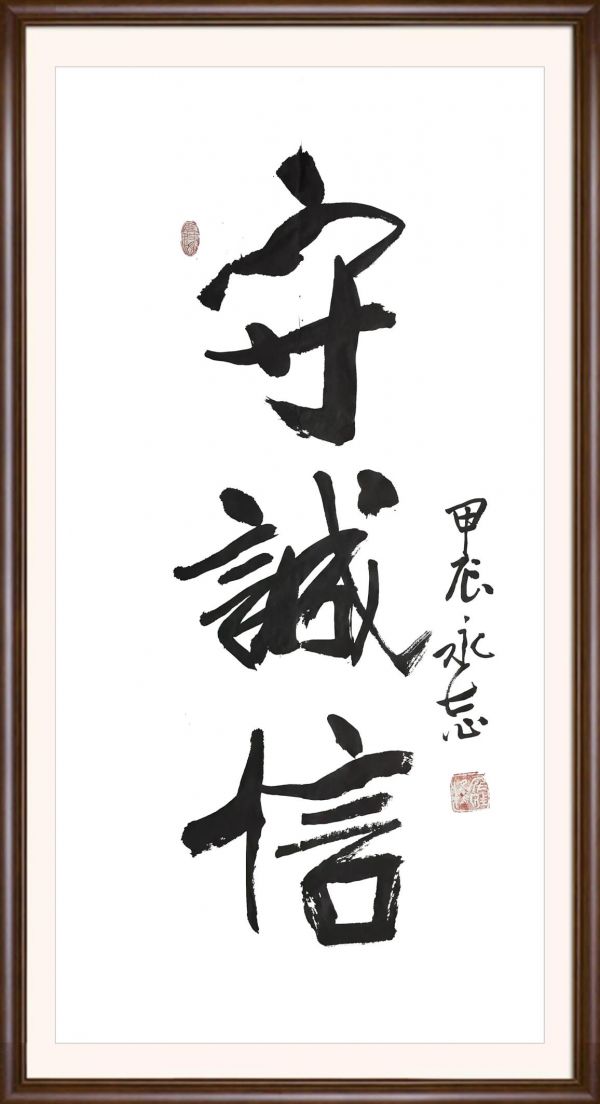 守誠信
甲辰永忘